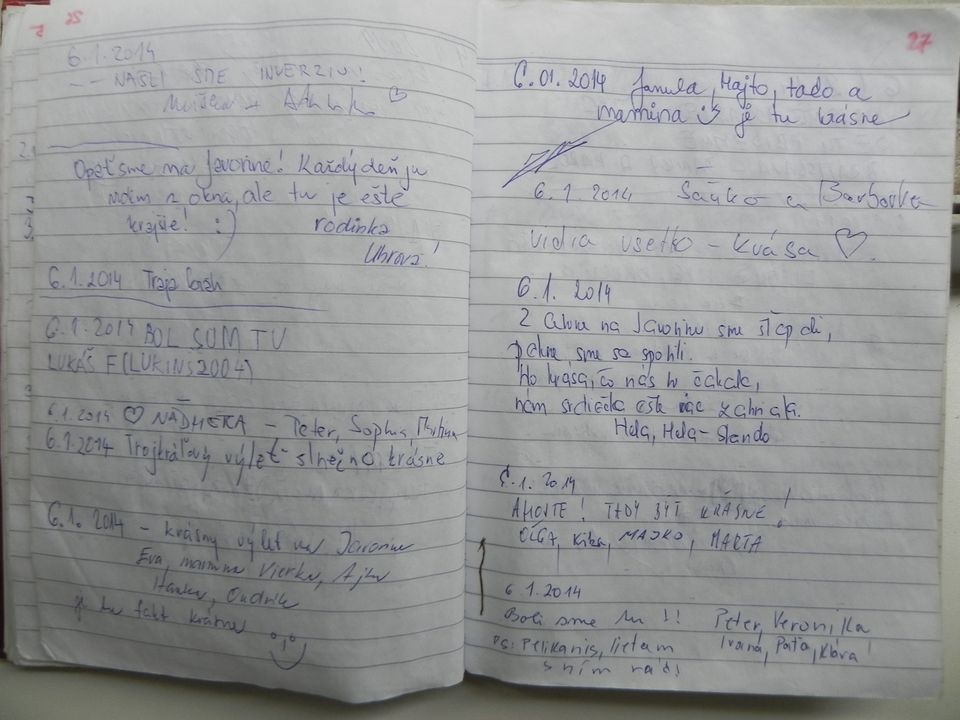 25
6.1.2014
-- NAŠLI SME INVERZIU!
Opäť sme na Javorine! Každý deň ju
vidím z okna, ale tu je ešte
krajšie! :) rodinka
Uhrová!
6.1.2014 Traja
6.1.2014 BOL SOM TU
LUKÁŠ F (LUKINS2004)
6.1.2014 ♡ NÁDHERA - Peter, Sophia,
6.1.2014 Trojkráľový výlet - slnečno, krásne
6.1.2014 - krásny výlet na Javorinu
Eva, mamina Vierka,
Hanka, Ondrík
je tu fakt krásne
27
6.01.2014 Janula, Majto, tado a
mamina :) je tu krásne
6.1.2014 Saško a Barborka
vidia všetko - krása ♡
6.1.2014
Z na Javorinu sme šľapali,
sme sa spotili.
No krása, čo nás tu čakala,
nám srdiečka ešte viac zahriala.
Hela, Hela - Slando
6.1.2014
AHOJTE! TADY BÝT KRÁSNÉ!
OĽGA, Kika, MAJKO, MARTA
6.1.2014
Boli sme tu!! Peter, Veronika
Ivana, Paťa, Klára
PS: Pelikanis, lietam
s ním rád!